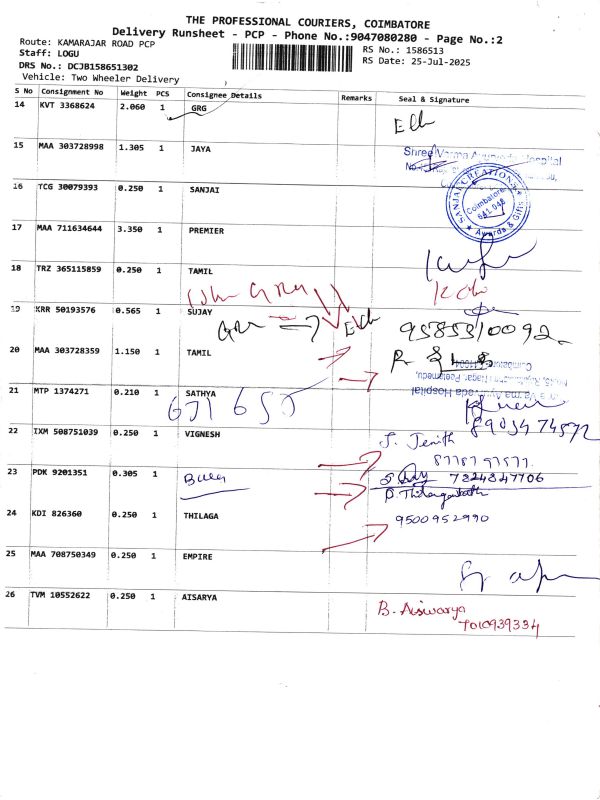 THE PROFESSIONAL COURIERS, COIMBATORE
Delivery Runsheet - PCP - Phone No.:9047080280 - Page No.:2
Route: KAMARAJAR ROAD PCP
RS No.: 1586513
Staff: LOGU
RS Date: 25-Jul-2025
DRS No.: DCJB158651302
Vehicle: Two Wheeler Delivery
S No Consignment No Weight PCS Consignee Details Remarks Seal & Signature
14 KVT 3368624 2.060 1 GRG
15 MAA 303728998 1.305 1 JAYA
Shree Varma Ayurveda Hospital
16 TCG 30079393 0.250 1 SANJAI
SANJAI CREATION
Coimbatore
641 048
★ Awards & Gifts ★
17 MAA 711634644 3.350 1 PREMIER
18 TRZ 365115859 0.250 1 TAMIL
19 KRR 50193576 0.565 1 SUJAY
9585310092
20 MAA 303728359 1.150 1 TAMIL
21 MTP 1374271 0.210 1 SATHYA
8903474572
22 IXM 508751039 0.250 1 VIGNESH
J. Jenith
23 PDK 9201351 0.305 1
7224847706
24 KDI 826360 0.250 1 THILAGA
9500952990
25 MAA 708750349 0.250 1 EMPIRE
26 TVM 10552622 0.250 1 AISARYA
B. Aiswarya
7010939334